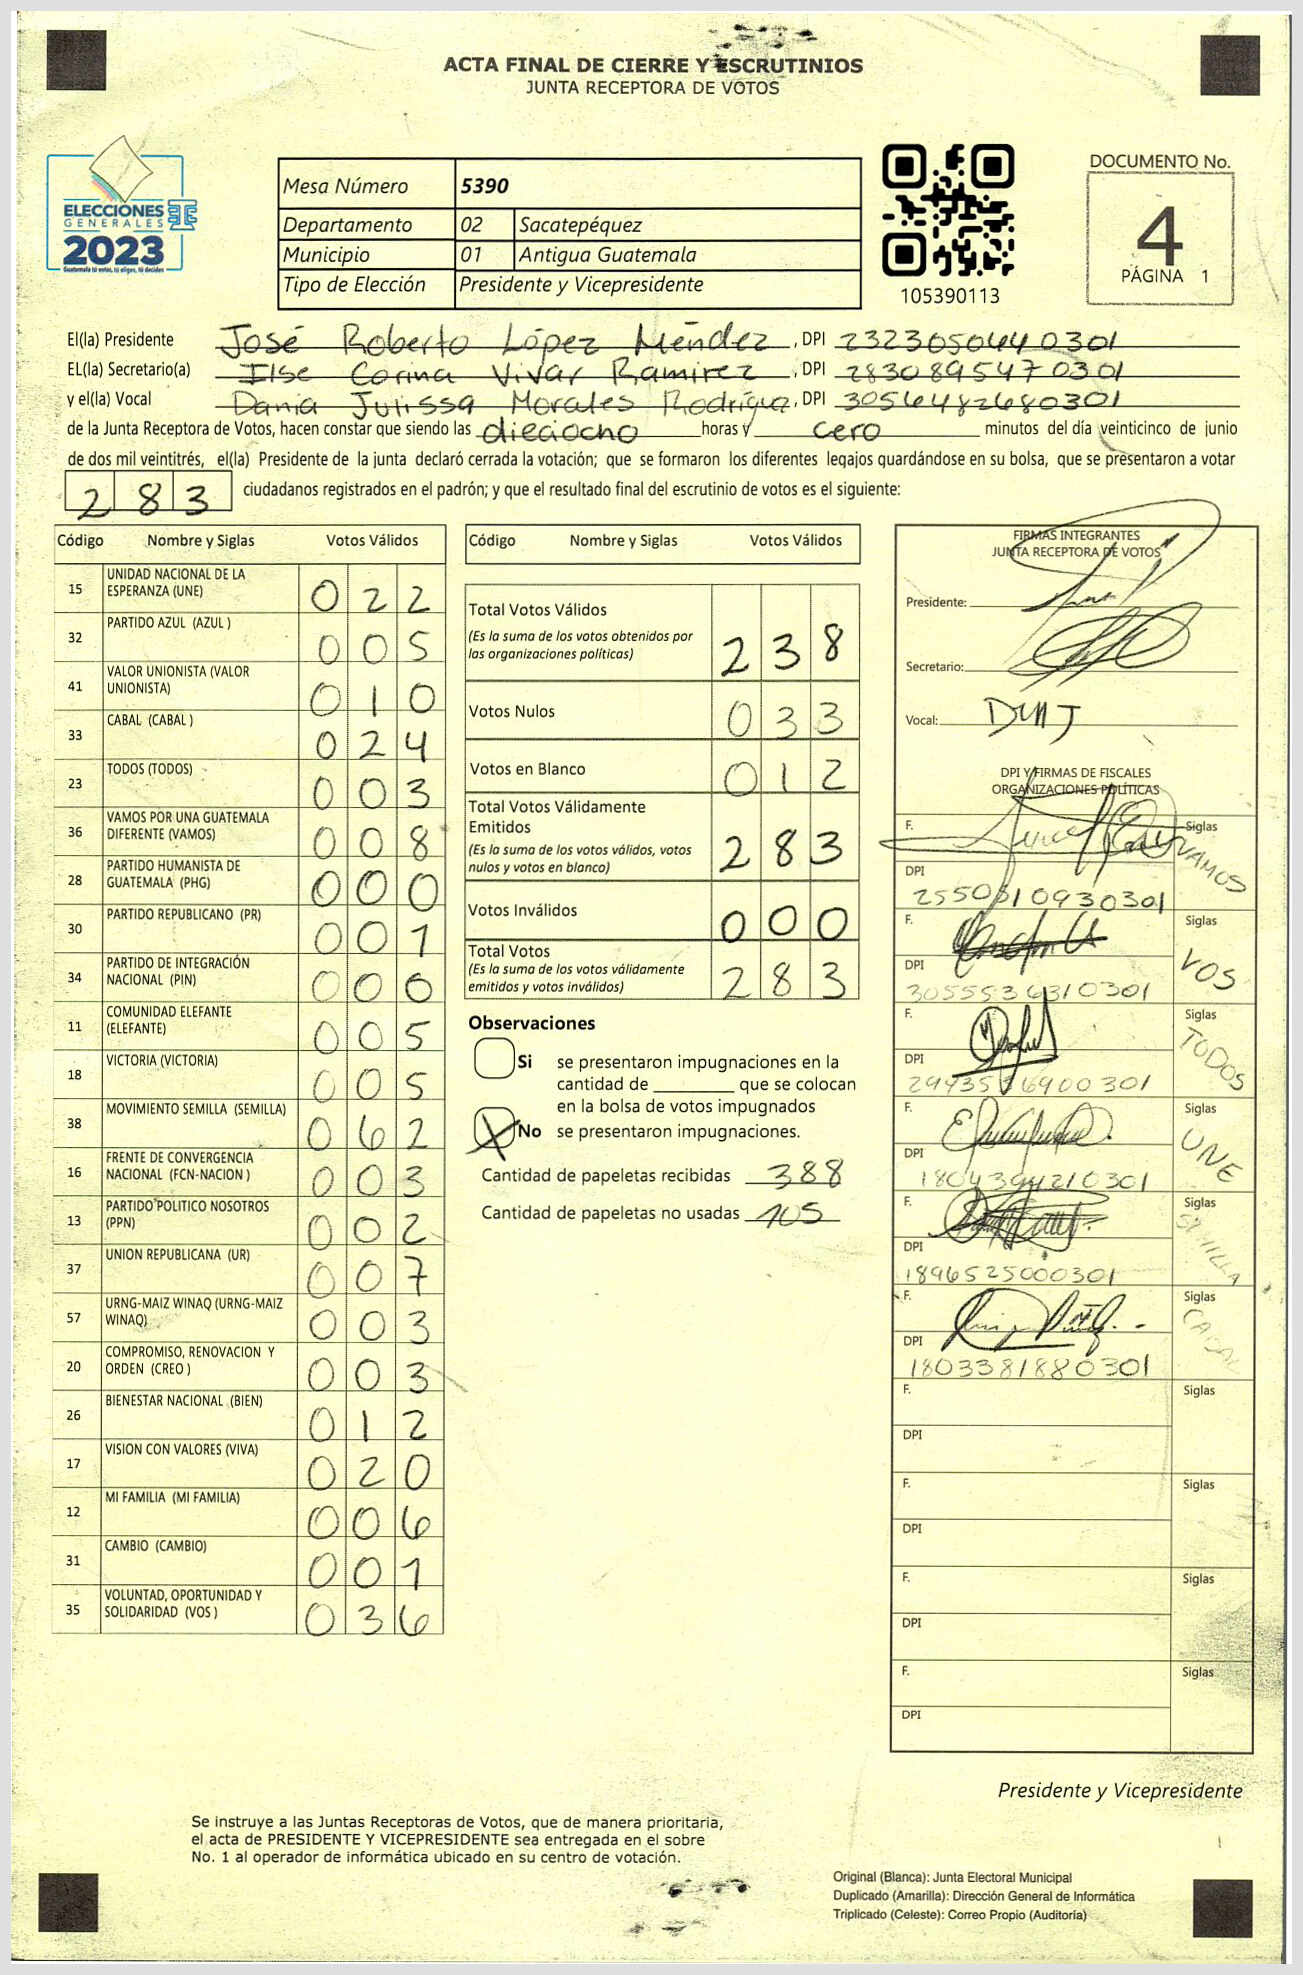 ACTA FINAL DE CIERRE Y ESCRUTINIOS
JUNTA RECEPTORA DE VOTOS
ELECCIONES
GENERALES
2023
Guatemala tú votas, tú eliges, tú decides
Mesa Número 5390
Departamento 02 Sacatepéquez
Municipio 01 Antigua Guatemala
Tipo de Elección Presidente y Vicepresidente
105390113
DOCUMENTO No.
4
PÁGINA 1
El(la) Presidente José Roberto López Méndez, DPI 2323050440301
EL(la) Secretario(a) Ilse Corina Vivar Ramirez, DPI 2830895470301
y el(la) Vocal Dania Julissa Morales Rodríguez, DPI 3056482680301
de la Junta Receptora de Votos, hacen constar que siendo las dieciocho horas y cero minutos del día veinticinco de junio
de dos mil veintitrés, el(la) Presidente de la junta declaró cerrada la votación; que se formaron los diferentes legajos quardándose en su bolsa, que se presentaron a votar
283 ciudadanos registrados en el padrón; y que el resultado final del escrutinio de votos es el siguiente:
Código Nombre y Siglas Votos Válidos
15 UNIDAD NACIONAL DE LA
ESPERANZA (UNE) 022
32 PARTIDO AZUL (AZUL ) 005
41 VALOR UNIONISTA (VALOR
UNIONISTA) 010
33 CABAL (CABAL ) 024
23 TODOS (TODOS) 003
36 VAMOS POR UNA GUATEMALA
DIFERENTE (VAMOS) 008
28 PARTIDO HUMANISTA DE
GUATEMALA (PHG) 000
30 PARTIDO REPUBLICANO (PR) 001
34 PARTIDO DE INTEGRACIÓN
NACIONAL (PIN) 000
11 COMUNIDAD ELEFANTE
(ELEFANTE) 005
18 VICTORIA (VICTORIA) 005
38 MOVIMIENTO SEMILLA (SEMILLA) 062
16 FRENTE DE CONVERGENCIA
NACIONAL (FCN-NACION ) 003
13 PARTIDO POLITICO NOSOTROS
(PPN) 002
37 UNION REPUBLICANA (UR) 007
57 URNG-MAIZ WINAQ (URNG-MAIZ
WINAQ) 003
20 COMPROMISO, RENOVACION Y
ORDEN (CREO ) 003
26 BIENESTAR NACIONAL (BIEN) 012
17 VISION CON VALORES (VIVA) 020
12 MI FAMILIA (MI FAMILIA) 006
31 CAMBIO (CAMBIO) 001
35 VOLUNTAD, OPORTUNIDAD Y
SOLIDARIDAD (VOS ) 036
Código Nombre y Siglas Votos Válidos
Total Votos Válidos 238
(Es la suma de los votos obtenidos por
las organizaciones políticas)
Votos Nulos 033
Votos en Blanco 012
Total Votos Válidamente
Emitidos 283
(Es la suma de los votos válidos, votos
nulos y votos en blanco)
Votos Inválidos 000
Total Votos 283
(Es la suma de los votos válidamente
emitidos y votos inválidos)
Observaciones
Si se presentaron impugnaciones en la
cantidad de ________ que se colocan
en la bolsa de votos impugnados
X No se presentaron impugnaciones.
Cantidad de papeletas recibidas 388
Cantidad de papeletas no usadas 105
FIRMAS INTEGRANTES
JUNTA RECEPTORA DE VOTOS
Presidente:
Secretario:
Vocal:
DPI Y FIRMAS DE FISCALES
ORGANIZACIONES POLÍTICAS
F. Siglas VAMOS
DPI 2550810930301
F. Siglas VOS
DPI 3055536310301
F. Siglas TODOS
DPI 2993536900301
F. Siglas UNE
DPI 1804394210301
F. Siglas SEMILLA
DPI 1896525000301
F. Siglas CABAL
DPI 1803381880301
F. Siglas
DPI
F. Siglas
DPI
F. Siglas
DPI
F. Siglas
DPI
Presidente y Vicepresidente
Se instruye a las Juntas Receptoras de Votos, que de manera prioritaria,
el acta de PRESIDENTE Y VICEPRESIDENTE sea entregada en el sobre
No. 1 al operador de informática ubicado en su centro de votación.
Original (Blanca): Junta Electoral Municipal
Duplicado (Amarilla): Dirección General de Informática
Triplicado (Celeste): Correo Propio (Auditoría)